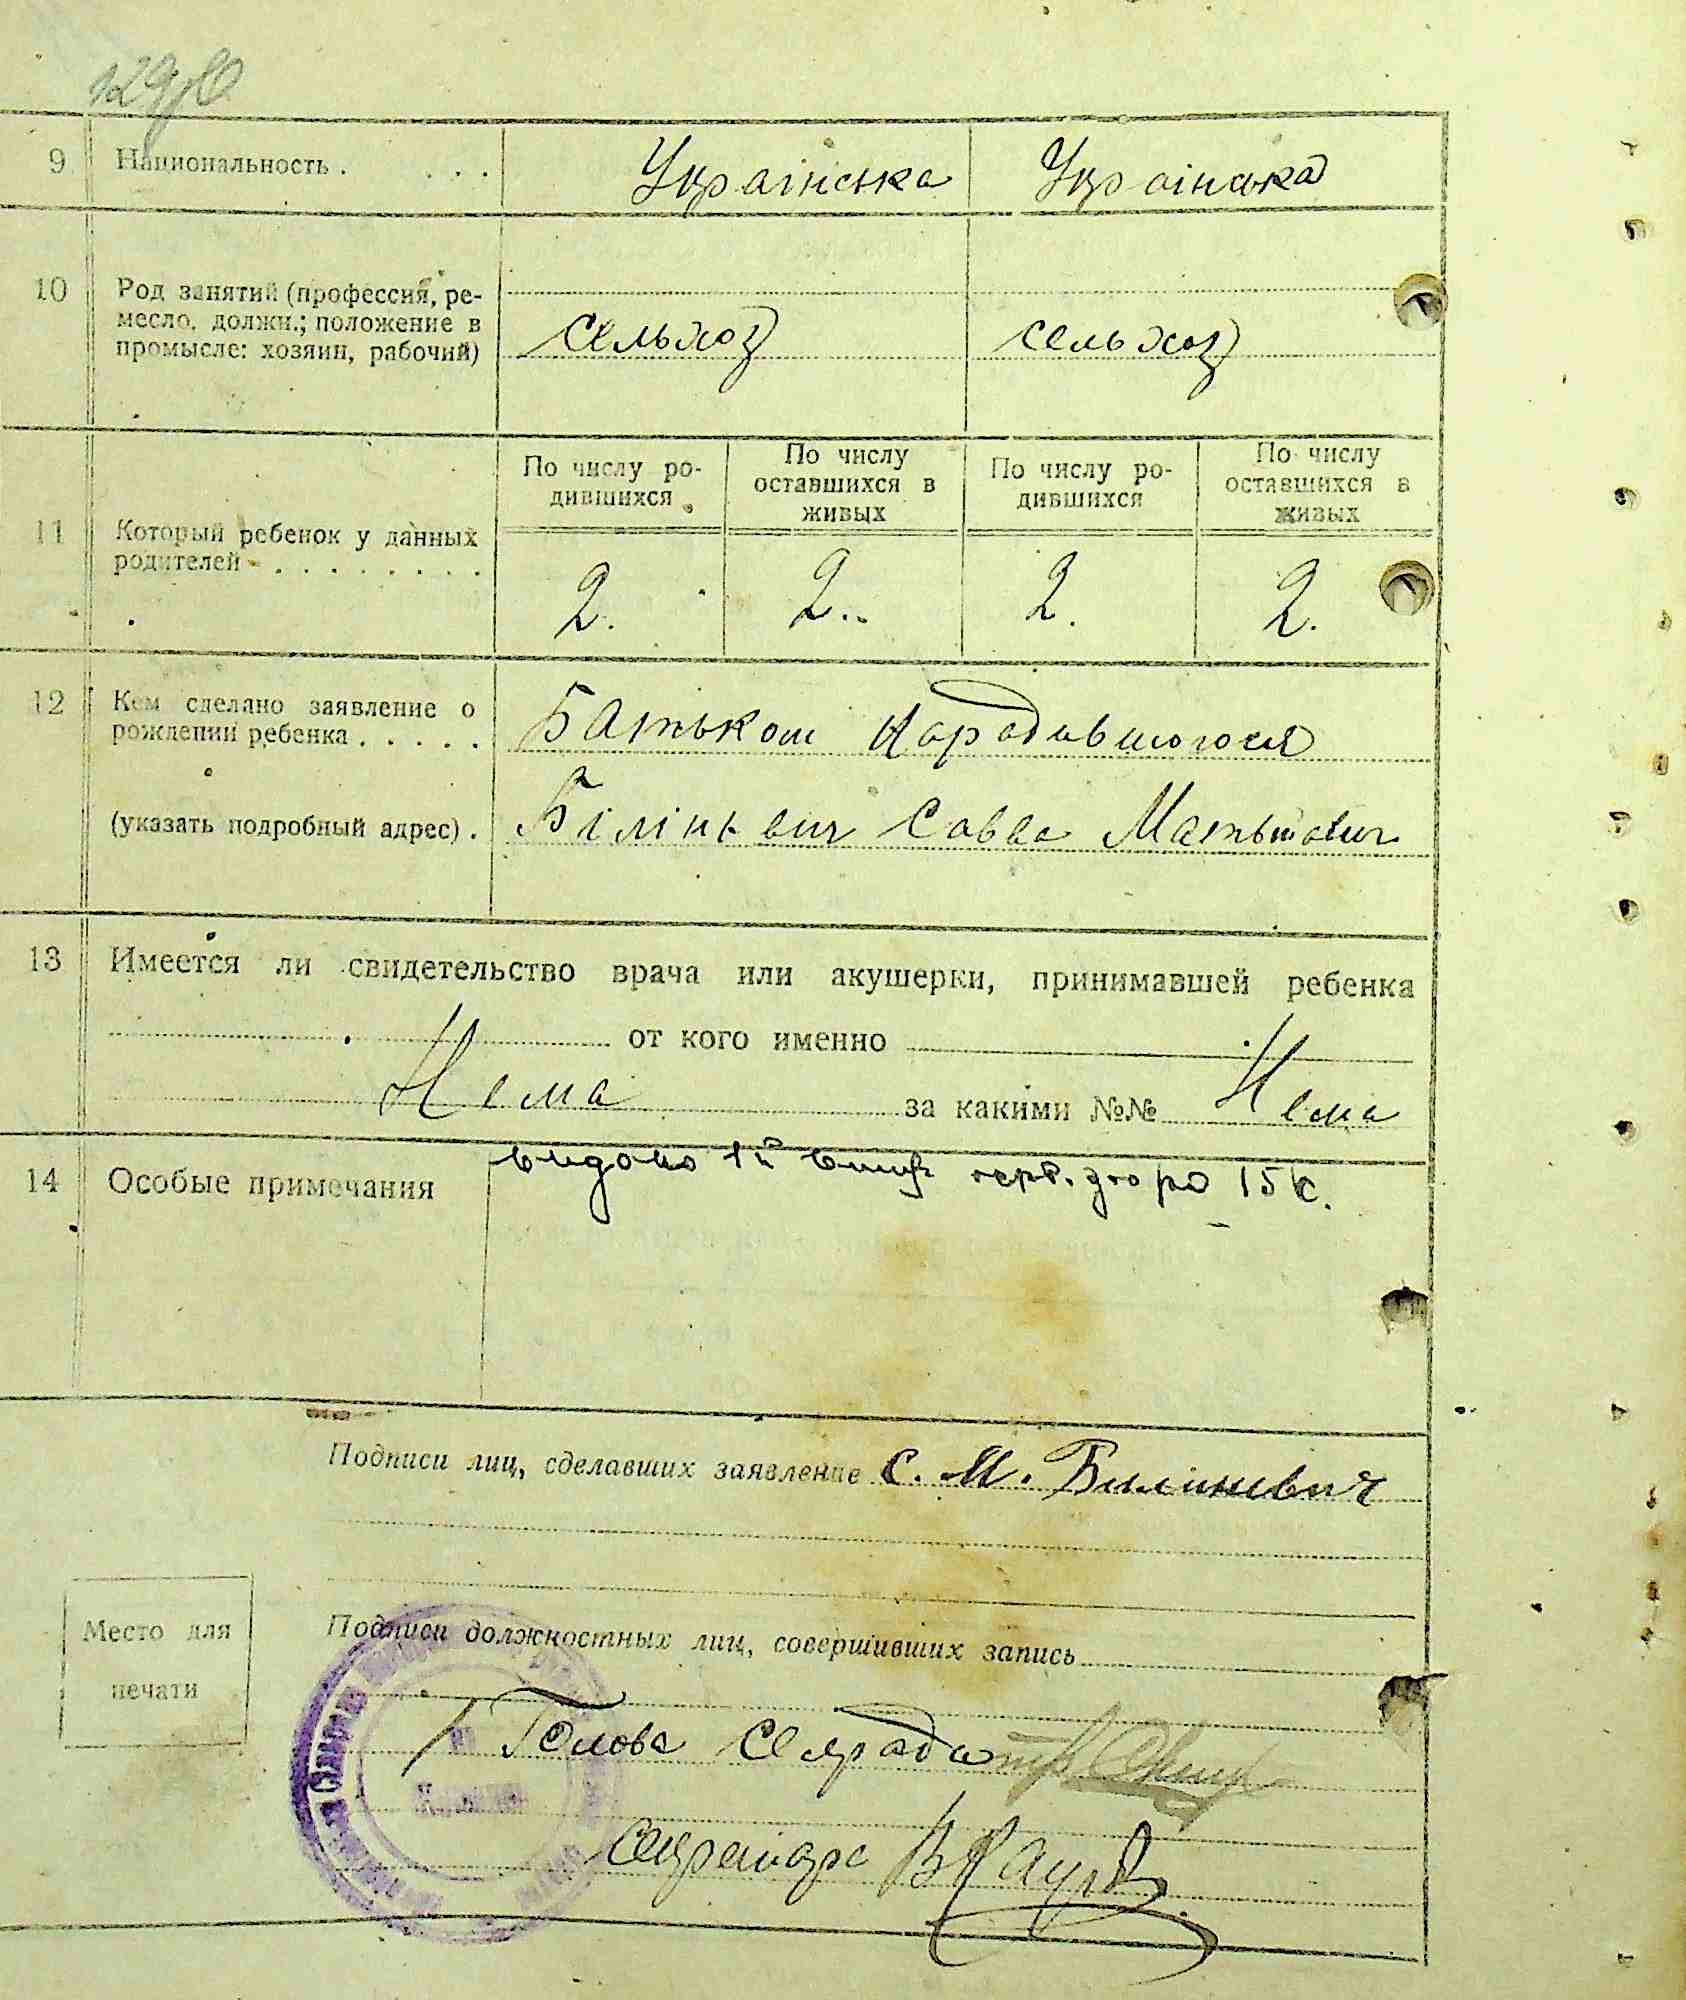 9 Национальность . . . . Українська Українська
10 Род занятий (профессия, ре-
месло, должн.; положение в
промысле: хозяин, рабочий)
сельхоз сельхоз
11 Который ребенок у данных
родителей . . . . . . . .
По числу ро-
дившихся
По числу
оставшихся в
живых
По числу ро-
дившихся
По числу
оставшихся в
живых
2. 2.. 2. 2.
12 Кем сделано заявление о
рождении ребенка . . . . .
(указать подробный адрес) .
Батьком Народившогося
Білінкевич Савва Матвѣевич
13 Имеется ли свидетельство врача или акушерки, принимавшей ребенка
от кого именно
Нема за какими №№ Нема
14 Особые примечания
видано 15 к.
Подписи лиц, сделавших заявление С. М. Билинкевич
Место для
печати
Подписи должностных лиц, совершивших запись
Голова сельради
секретарь